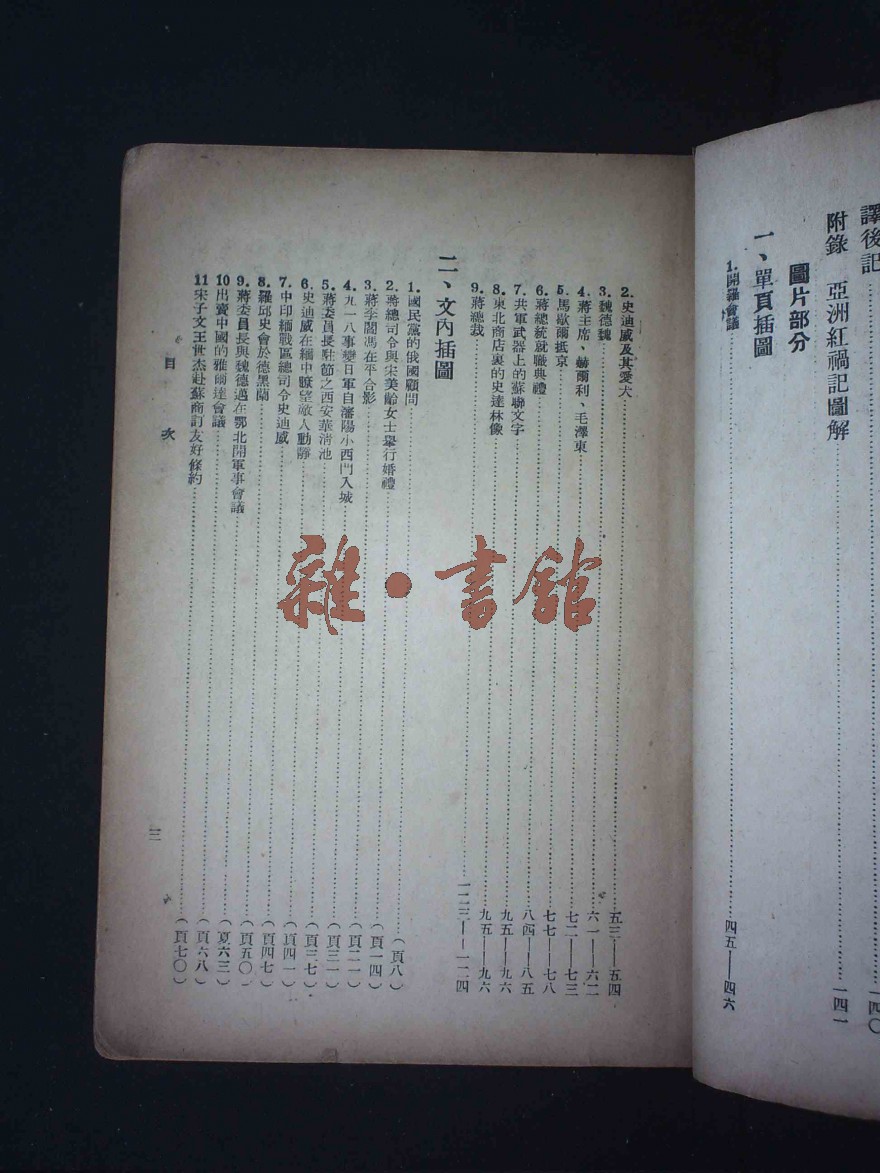 譯後記……一四〇
附錄 亞洲紅禍記圖解……一四一
圖片部分
一、單頁插圖
1.開羅會議……四五——四六
2.史迪威及其愛犬……五三——五四
3.魏德邁……六一——六二
4.蔣主席、赫爾利、毛澤東……七二——七三
5.馬歇爾抵京……七七——七八
6.蔣總統就職典禮……八四——八五
7.共軍武器上的蘇聯文字……九五——九六
8.東北商店裏的史達林像……九五——九六
9.蔣總裁……一二三——一二四
二、文內插圖
1.國民黨的俄國顧問……(頁八)
2.蔣總司令與宋美齡女士舉行婚禮……(頁一四)
3.蔣李閻馮在平合影……(頁二一)
4.九一八事變日軍自瀋陽小西門入城……(頁三一)
5.蔣委員長駐節之西安華清池……(頁三七)
6.史迪威在緬中瞭望敵人動靜……(頁四一)
7.中印緬戰區總司令史迪威……(頁四七)
8.羅邱史會於德黑蘭……(頁五〇)
9.蔣委員長與魏德邁在鄂北開軍事會議……(頁六三)
10出賣中國的雅爾達會議……(頁六八)
11宋子文王世杰赴蘇商訂友好條約……(頁七〇)
目次
三
雜·書館